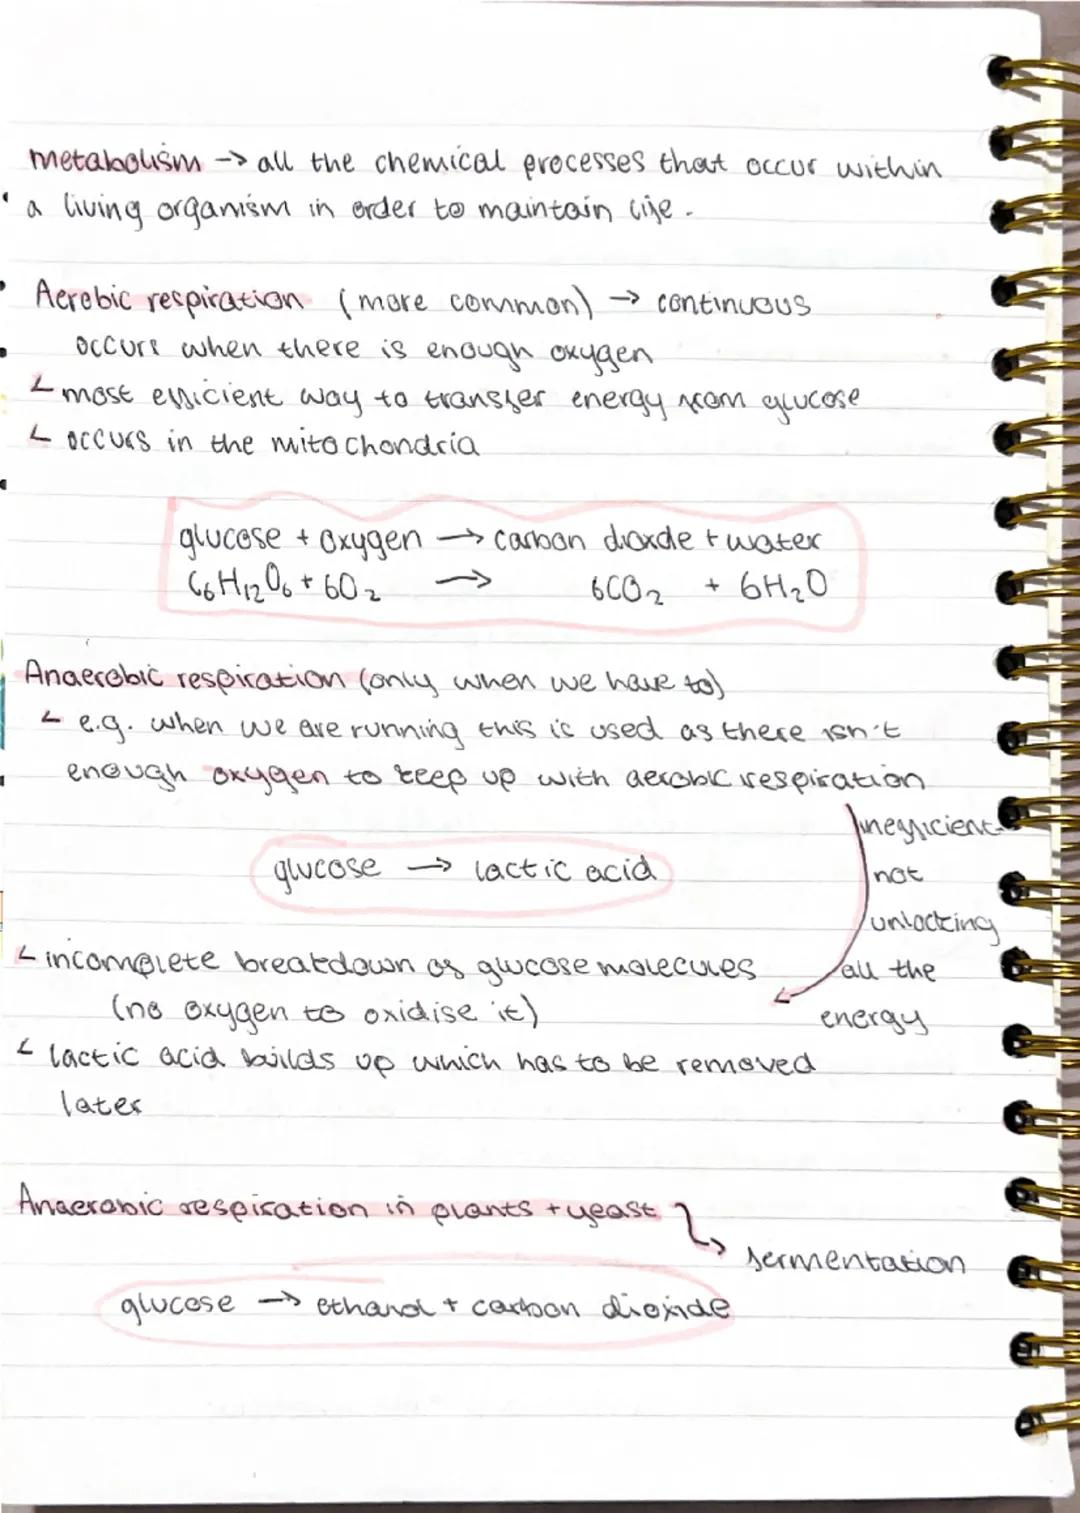 metabolism → all the chemical processes that occur within
a living organism in order to maintain life.
Aerobic respiration (more common) → continuous
occurs when there is enough oxygen
most efficient way to transfer energy from glucose
occurs in the mitochondria
glucose + oxygen → carbon dioxde + water
C₆H₁₂O₆ + 6O₂ → 6CO₂ + 6H₂O
Anaerobic respiration (only when we have to)
e.g. when we are running this is used as there isn't
enough oxygen to keep up with aerobic respiration
inefficient
not
unlocking
all the
energy
glucose → lactic acid
incomplete breakdown of glucose molecules
(no oxygen to oxidise it)
lactic acid builds up which has to be removed
later
Anaerobic respiration in plants + yeast
fermentation
glucose → ethanol + carbon dioxide